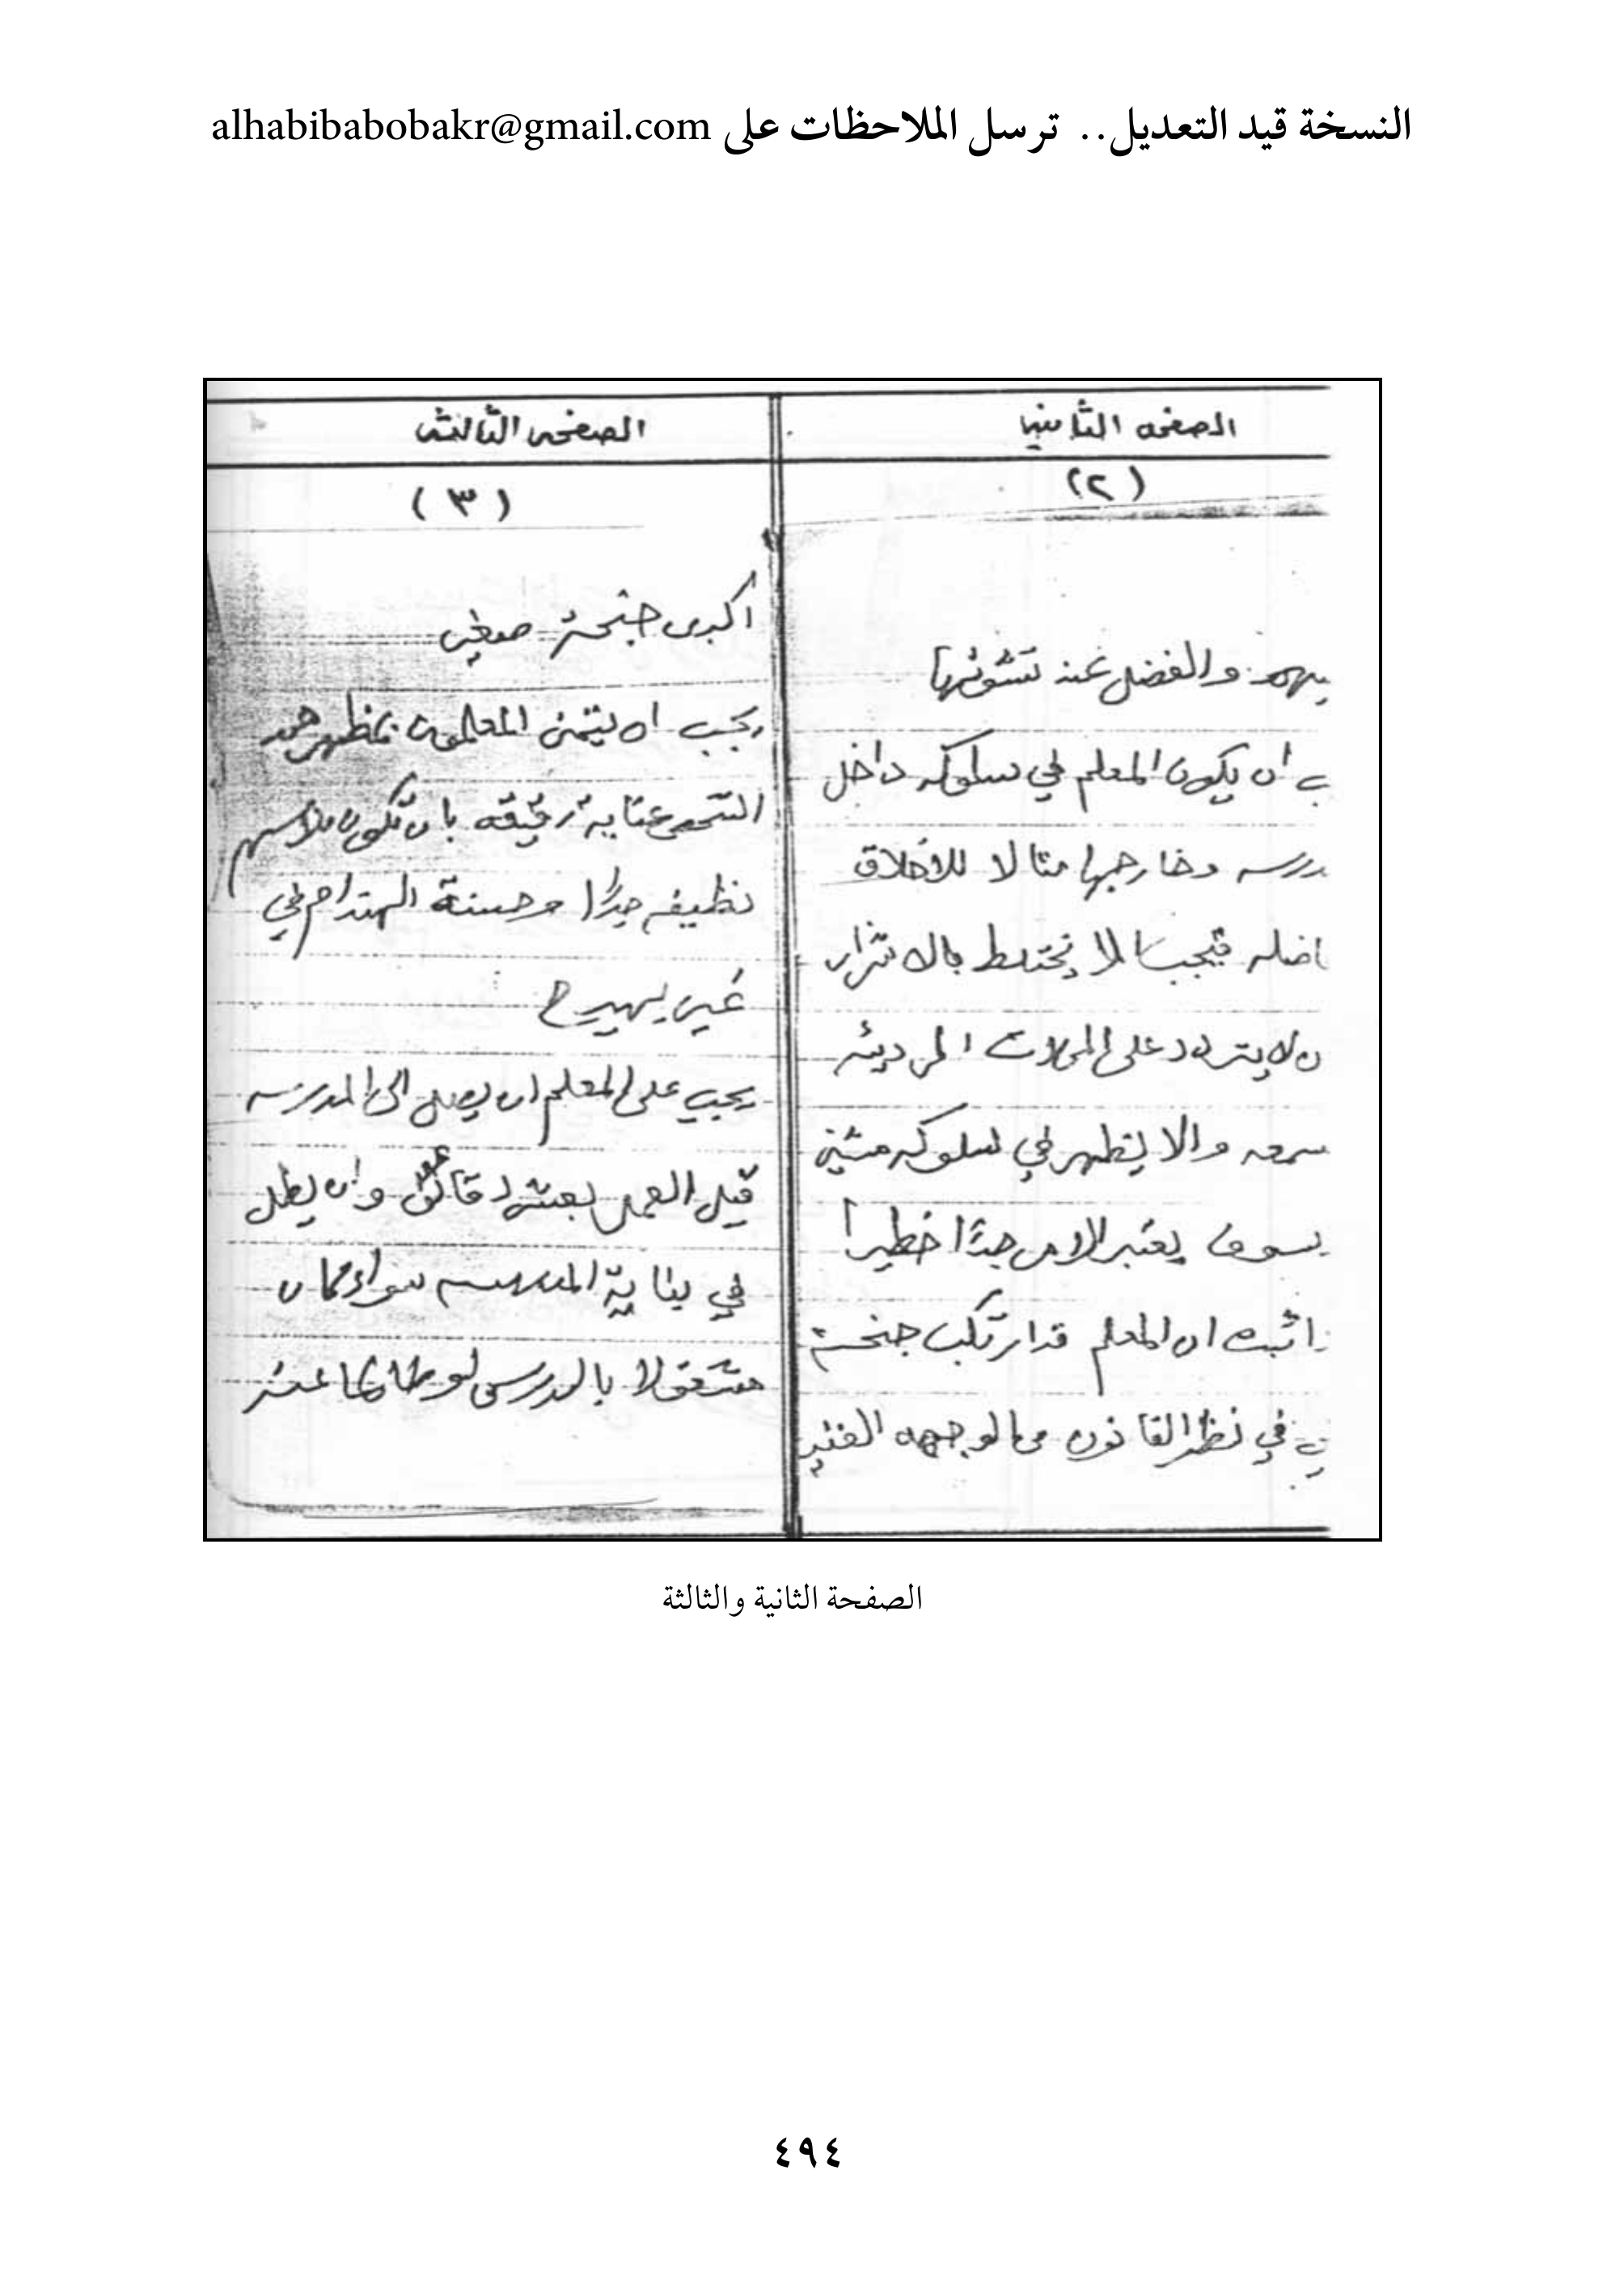 النسخة قيد التعديل.. ترسل الملاحظات على alhabibabobakr@gmail.com
الصفحه الثانيه
(٢)
والفضل عند
ان يكون المعلم في سلوكه داخل
درسه وخارجها مثالا للاخلاق
اضله فيجب الا يختلط بالاشرار
ن لا يتردد على المحلات الرديئه
سمعه والا يظهر في سلوكه مشين
سوف يعتبر الامر جدًا خطيراً
اثبت ان المعلم قد ارتكب جنحة
في نظر القانون
الصفحه الثالثه
(٣)
جنحة صغيره
يجب ان المعلمون بمظهرهم
عناية بان تكون ملابسهم
نظيفه جدًا وحسنة الهندام في
غير بهرج
يجب على المعلم ان يصل الى المدرسه
قبل العمل بعشر دقائق وان يظل
في بناية المدرسه سواء كان
مشغولا بالدرس
الصفحة الثانية والثالثة
٤٩٤